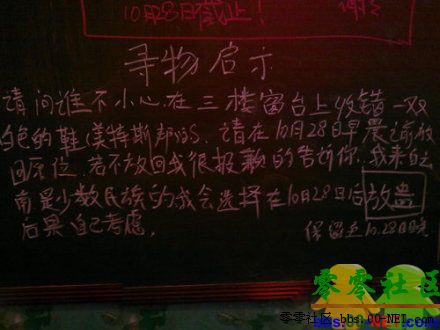 10月28日截止!
寻物启示
请问谁不小心在三楼窗台上收错一双
白色的鞋(美特斯邦的)。请在10月28日早晨前放
回原位,若不放回我很报歉的告诉你,我来自云
南是少数民族的我会选择在10月28日后放蛊
后果自己考虑。
保留至10.28日晚
零零社区
零零社区 bbs.00-NET.com
bbs.00-NET.com